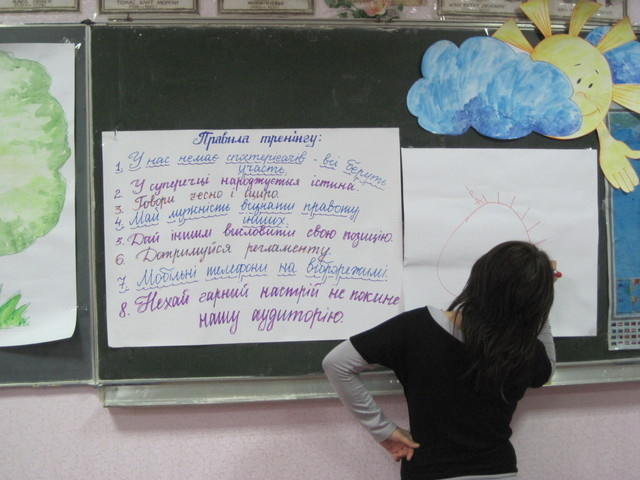 Правила тренінгу:
1. У нас немає спостерігачів - всі беруть
участь.
2. У суперечці народжується істина.
3. Говори чесно і щиро.
4. Май мужність візнати правоту
інших.
5. Дай іншим висловити свою позицію.
6. Дотримуйся регламенту.
7. Мобільні телефони на віброрежимі.
8. Нехай гарний настрій не покине
нашу аудиторію.